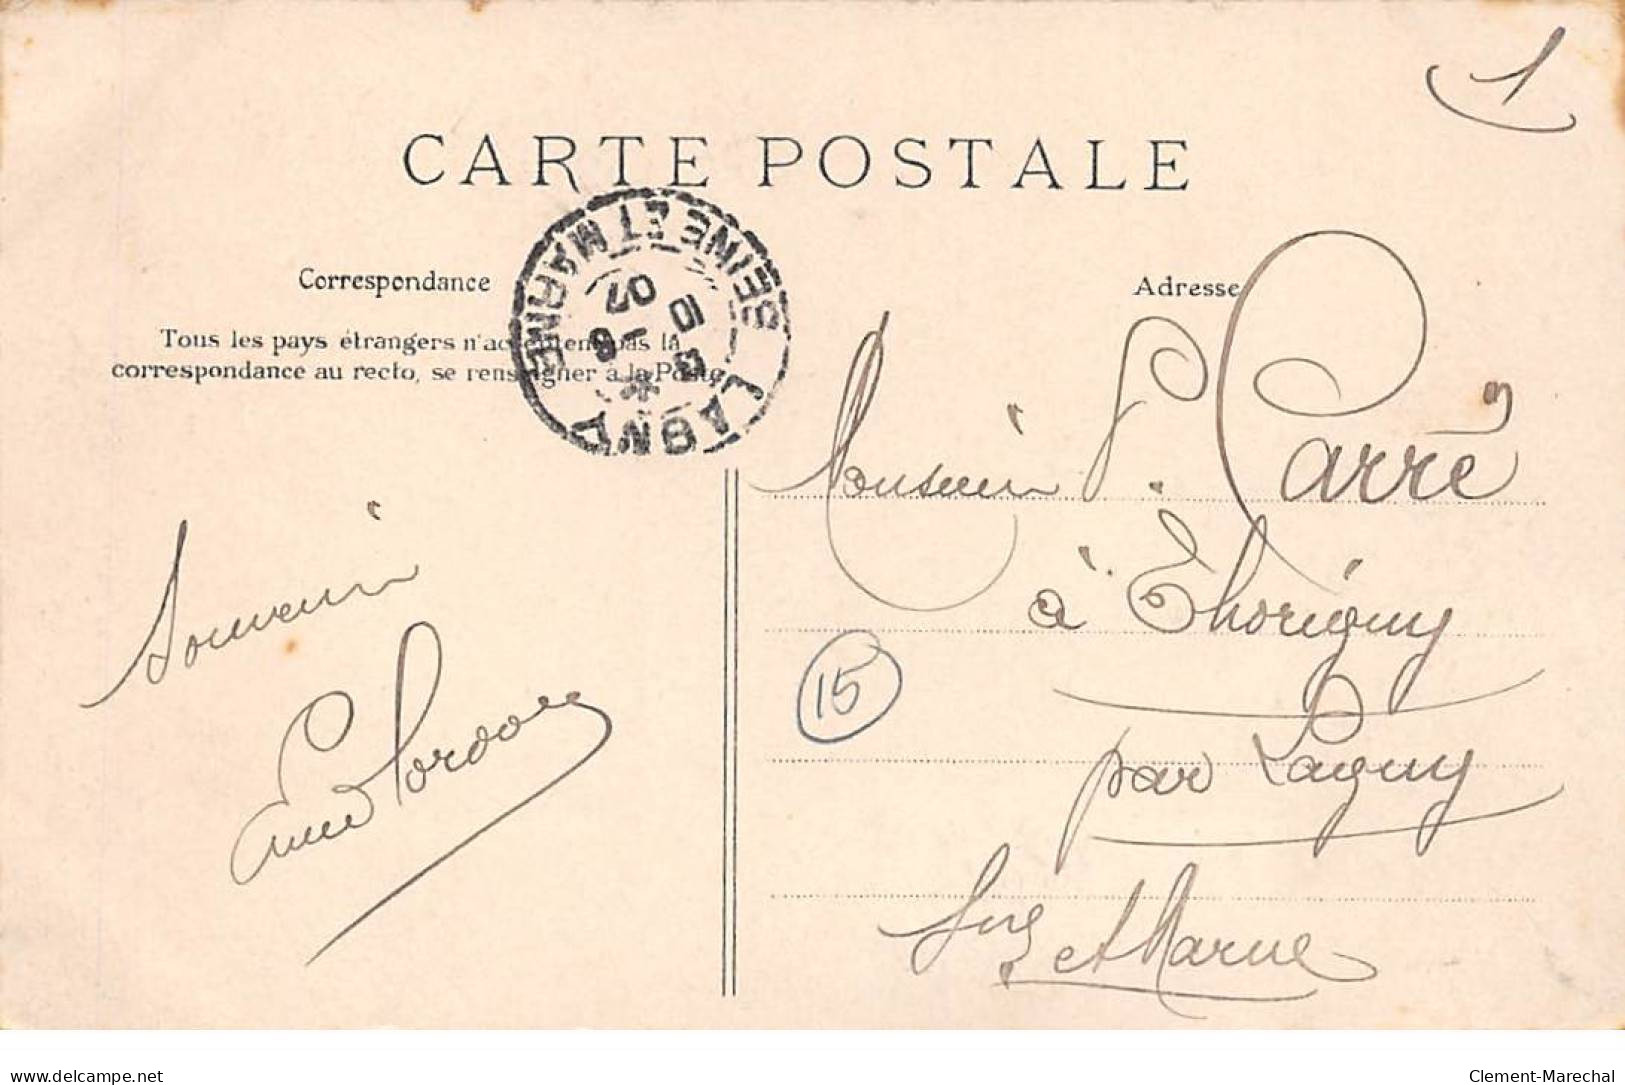 1
CARTE POSTALE
Correspondance
Tous les pays étrangers n'acceptent pas la
correspondance au recto, se renseigner à la Poste
LAGNY SEINE ET MARNE
07
Adresse
Monsieur P. Carré
à Thorigny
par Lagny
Sne et Marne
15
Souvenir
www.delcampe.net
Clement-Marechal